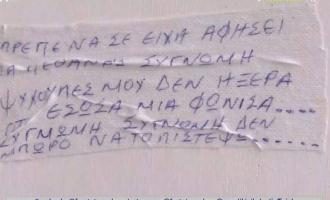 ΠΡΕΠΕ ΝΑ ΣΕ ΕΙΧΑ ΑΦΗΣΕΙ
ΝΑ ΠΕΘΑΝΕΙΣ ΣΥΓΝΟΜΗ
ΨΥΧΟΥΛΕΣ ΜΟΥ ΔΕΝ ΗΞΕΡΑ
ΟΤΙ ΕΣΩΣΑ ΜΙΑ ΦΩΝΙΣΑ....
ΣΥΓΝΩΜΗ ΣΥΓΝΟΜΗ ΔΕΝ
ΜΠΩΡΟ ΝΑ ΤΟ ΠΙΣΤΕΨΩ.....